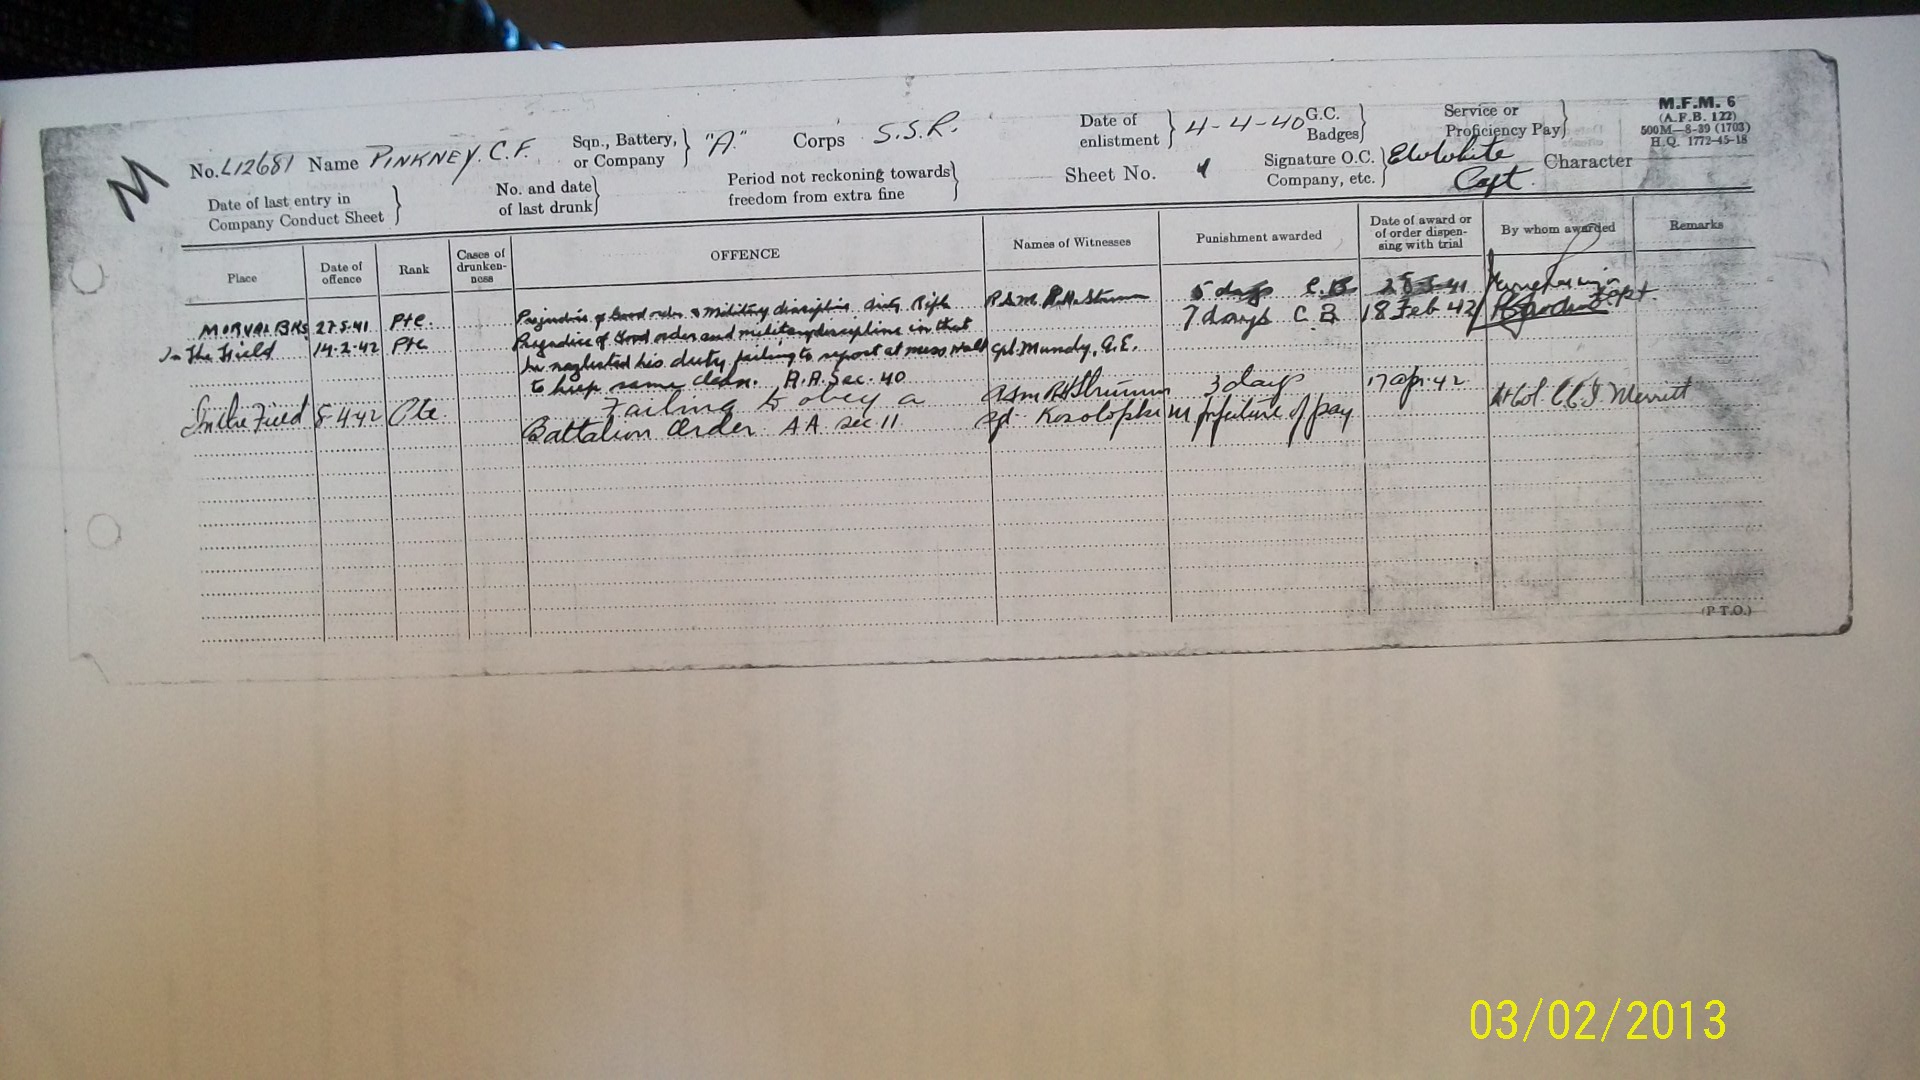 M.F.M. 6
(A.F.B. 122)
500M—8-39 (1703)
H.Q. 1772-45-18
M
No. L12681 Name PINKNEY. C.F. Sqn, Battery, or Company } "A" Corps S.S.R. Date of enlistment } 4-4-40 G.C. Badges} Service or Proficiency Pay}
Date of last entry in Company Conduct Sheet } No. and date of last drunk} Period not reckoning towards freedom from extra fine } Sheet No. Signature O.C. Company, etc. } White Capt. Character
Place Date of offence Rank Cases of drunken-ness OFFENCE Names of Witnesses Punishment awarded Date of award or of order dispen-sing with trial By whom awarded Remarks
MORVAL BKS 27-5-41 Pte. Prejudice of Good order & Military discipline. dirty Rifle R.S.M. 5 days C.B. 41
In The Field 14-2-42 Pte Prejudice of Good order and military discipline in that 7 days C.B. 18 Feb 42 Capt.
he neglected his duty failing to report at mess Hall Cpl. Mundy, G.E.
to keep same clean. A.A. Sec. 40
In the Field 8-4-42 Pte Failing to obey a 3 days 17 Apr 42
Battalion Order. AA sec 11. forfeiture of pay Merritt
(P.T.O.)
03/02/2013